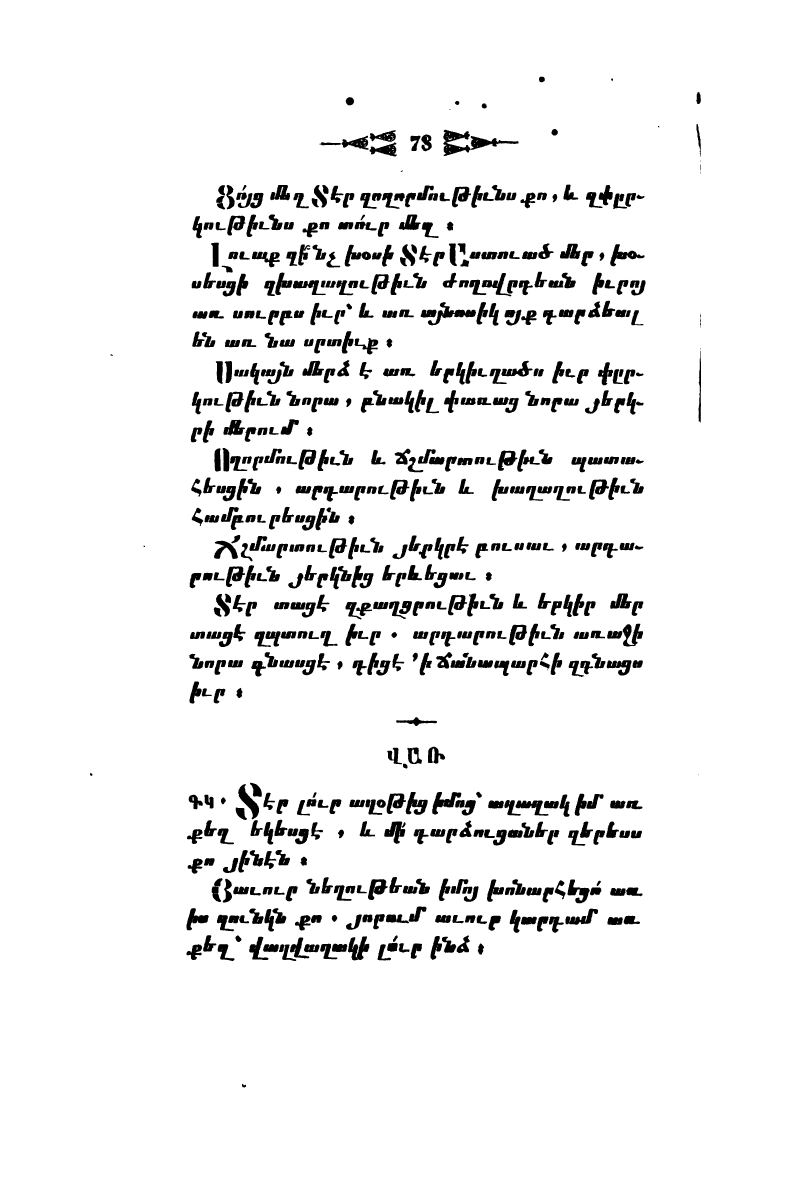 78
Ցո՛յց մեզ Տէր զողորմութիւնս քո, և զփըր-
կութիւնս քո տո՛ւր մեզ ։
Լուաք զի՞նչ խօսի Տէր Աստուած մեր, խօ-
սեսցի զխաղաղութիւն ժողովրդեան իւրոյ
առ սուրբս իւր՝ և առ այնոսիկ ոյք դարձեալ
են առ նա սրտիւք ։
Սակայն մերձ է առ երկիւղածս իւր փըր-
կութիւն նորա, բնակիլ փառաց նորա յերկ-
րի մերում ։
Ողորմութիւն և ճշմարտութիւն պատա-
հեսցին, արդարութիւն և խաղաղութիւն
համբուրեսցին ։
Ճշմարտութիւն յերկրէ բուսաւ, արդա-
րութիւն յերկնից երևեցաւ ։
Տէր տացէ զքաղցրութիւն և երկիր մեր
տացէ զպտուղ իւր . արդարութիւն առաջի
նորա գնասցէ, դիցէ ՚ի ճանապարհի զգնացս
իւր ։
ՎԱՌ
ԳԿ . Տէր լո՛ւր աղօթից իմոց՝ աղաղակ իմ առ
քեզ եկեսցէ, և մի՛ դարձուցաներ զերեսս
քո յինէն ։
Յաւուր նեղութեան իմոյ խոնարհեցո՛ առ
իս զունկն քո . յորում աւուր կարդամ առ
քեզ՝ վաղվաղակի լո՛ւր ինձ ։